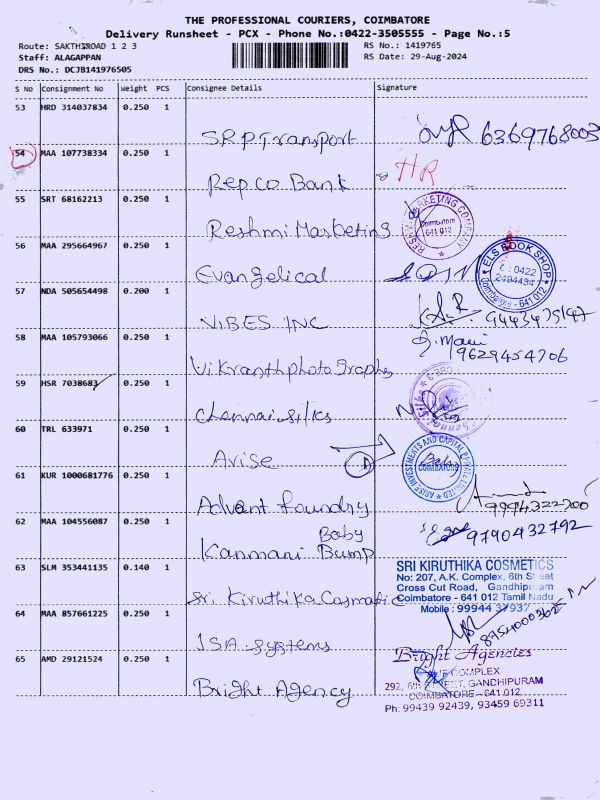 THE PROFESSIONAL COURIERS, COIMBATORE
Delivery Runsheet - PCX - Phone No.:0422-3505555 - Page No.:5
Route: SAKTHIROAD 1 2 3
RS No.: 1419765
Staff: ALAGAPPAN
RS Date: 29-Aug-2024
DRS No.: DCJB141976505
S No Consignment No Weight PCS Consignee Details Signature
53 HRD 314037834 0.250 1
S.R.P.Transport 6369768003
54 MAA 107738334 0.250 1
Repco Bank HR
55 SRT 68162213 0.250 1
Reshmi Marketing
RESHMI MARKETING COMPANY
Coimbatore
641 012
56 MAA 295664967 0.250 1
Evangelical
ELS BOOK SHOP
0422
2494434
Coimbatore - 641 012
57 NDA 505654498 0.200 1
VIBES INC
58 MAA 105793066 0.250 1
Vikranth photographs
9629454706
59 HSR 7038683 0.250 1
Chennai silks
60 TRL 633971 0.250 1
Arise
ARISE INVESTMENTS AND CAPITAL PRIVATE LIMITED
COIMBATORE
61 KUR 1000681776 0.250 1
Advant foundry 9994322700
62 MAA 104556087 0.250 1
Kanmani Baby Bump 9790432792
63 SLM 353441135 0.140 1
Sri. Kiruthika Cosmatic
SRI KIRUTHIKA COSMETICS
No: 207, A.K. Complex, 6th Street
Cross Cut Road, Gandhipuram
Coimbatore - 641 012 Tamil Nadu
Mobile : 99944 37937
64 MAA 857661225 0.250 1
ISA Systems
65 AMD 29121524 0.250 1
Bright Agency
Bright Agencies
COMPLEX
292, 6th STREET, GANDHIPURAM
COIMBATORE - 641 012
Ph: 99439 92439, 93459 69311